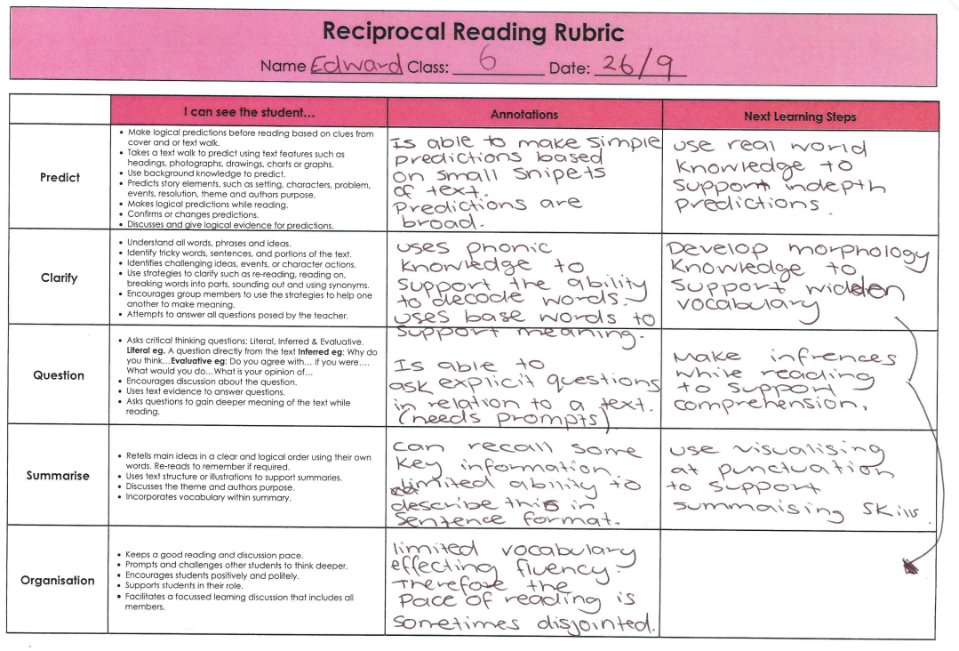 Reciprocal Reading Rubric
Name Edward Class: 6 Date: 26/9
I can see the student... Annotations Next Learning Steps
Predict
• Make logical predictions before reading based on clues from
cover and or text walk.
• Takes a text walk to predict using text features such as
headings, photographs, drawings, charts or graphs.
• Use background knowledge to predict.
• Predicts story elements, such as setting, characters, problem,
events, resolution, theme and authors purpose.
• Makes logical predictions while reading.
• Confirms or changes predictions.
• Discusses and give logical evidence for predictions.
Is able to make simple
predictions based
on small snipets
of text.
Predictions are
broad.
use real world
knowledge to
support indepth
predictions.
Clarify
• Understand all words, phrases and ideas.
• Identify tricky words, sentences, and portions of the text.
• Identifies challenging ideas, events, or character actions.
• Use strategies to clarify such as re-reading, reading on,
breaking words into parts, sounding out and using synonyms.
• Encourages group members to use the strategies to help one
another to make meaning.
• Attempts to answer all questions posed by the teacher.
uses phonic
knowledge to
support the ability
to decode words.
uses base words to
support meaning.
Develop morphology
knowledge to
support
vocabulary
Question
• Asks critical thinking questions: Literal, Inferred & Evaluative.
Literal eg. A question directly from the text Inferred eg: Why do
you think...Evaluative eg: Do you agree with... if you were....
What would you do...What is your opinion of...
• Encourages discussion about the question.
• Uses text evidence to answer questions.
• Asks questions to gain deeper meaning of the text while
reading.
Is able to
ask explicit questions
in relation to a text.
(needs prompts)
Make infrences
while reading
to support
comprehension.
Summarise
• Retells main ideas in a clear and logical order using their own
words. Re-reads to remember if required.
• Uses text structure or illustrations to support summaries.
• Discusses the theme and authors purpose.
• Incorporates vocabulary within summary.
can recall some
key information.
limited ability to
describe this in
sentence format.
use visualising
at punctuation
to support
summaising skills.
Organisation
• Keeps a good reading and discussion pace.
• Prompts and challenges other students to think deeper.
• Encourages students positively and politely.
• Supports students in their role.
• Facilitates a focussed learning discussion that includes all
members.
limited vocabulary
effecting fluency.
Therefore the
pace of reading is
sometimes disjointed.